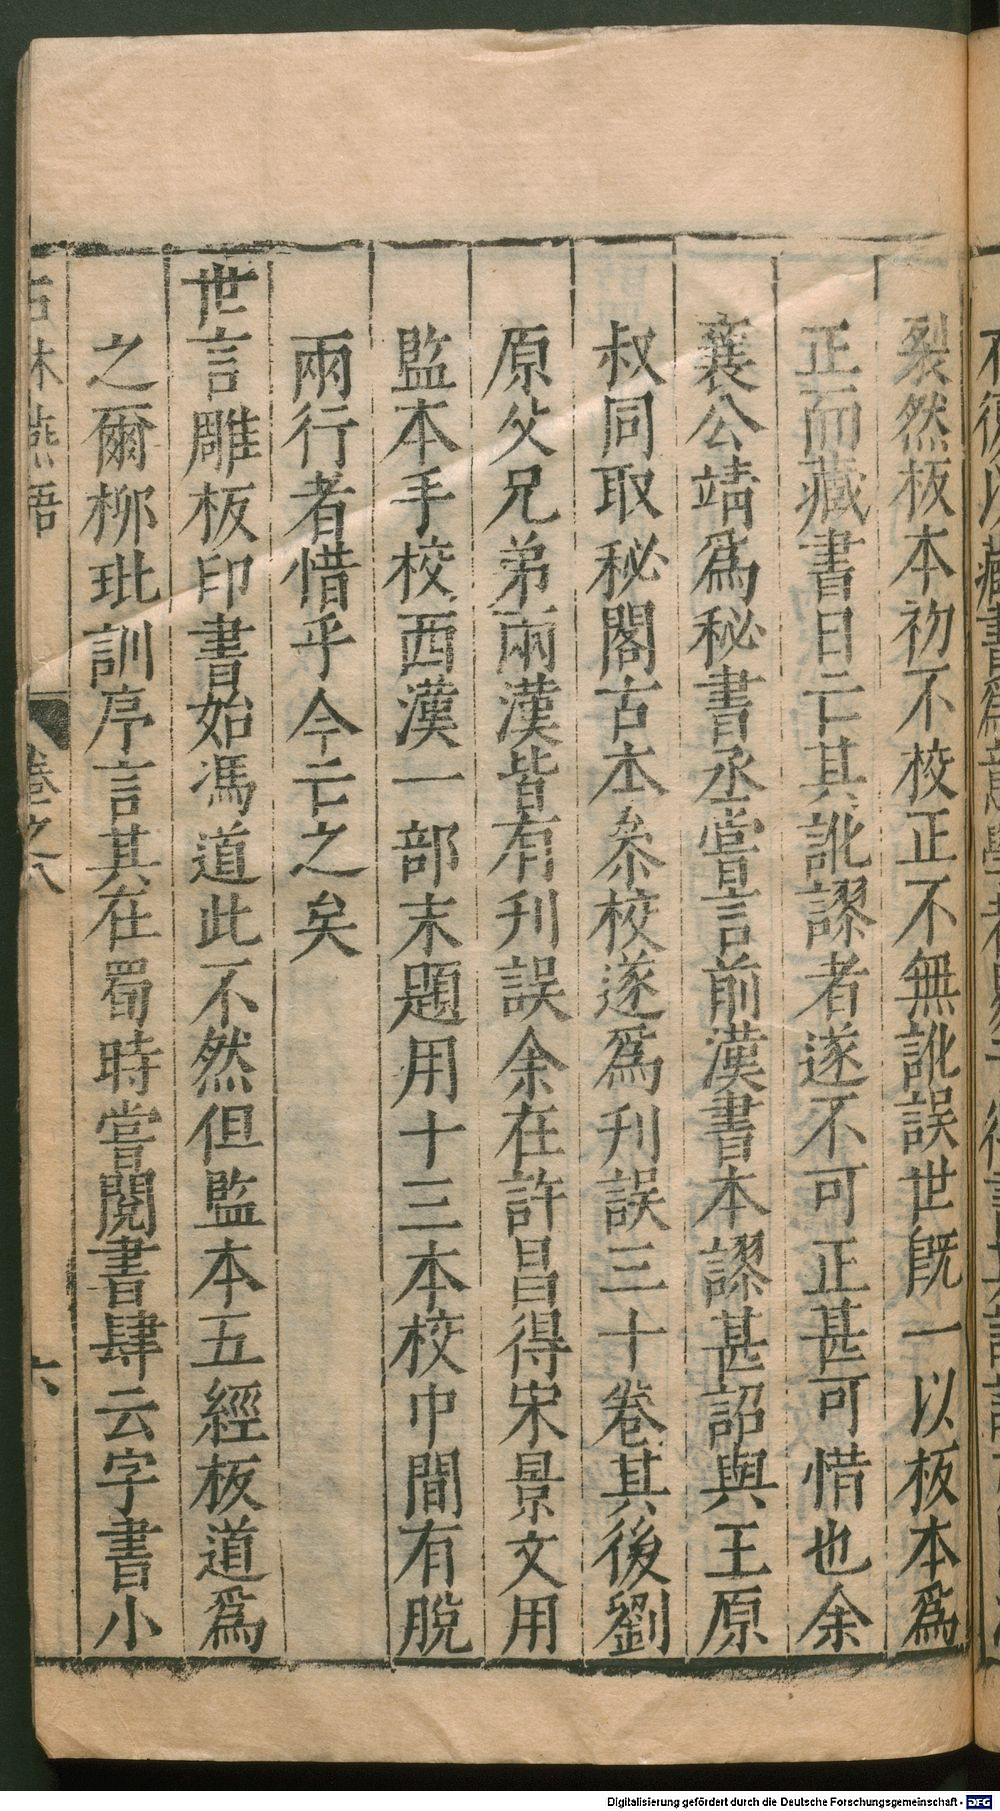 裂然板本初不校正不無訛誤世旣一以板本爲
正而藏書日亡其訛謬者遂不可正甚可惜也余
襄公靖爲秘書丞嘗言前漢書本謬甚詔與王原
叔同取秘閣古本叅校遂爲刋誤三十卷其後劉
原父兄弟兩漢皆有刋誤余在許昌得宋景文用
監本手校西漢一部末題用十三本校中間有脫
兩行者惜乎今亡之矣
世言雕板印書始馮道此不然但監本五經板道爲
之爾柳玭訓序言其在蜀時嘗閱書肆云字書小
石林燕語
卷之八
六
Digitalisierung gefördert durch die Deutsche Forschungsgemeinschaft - DFG